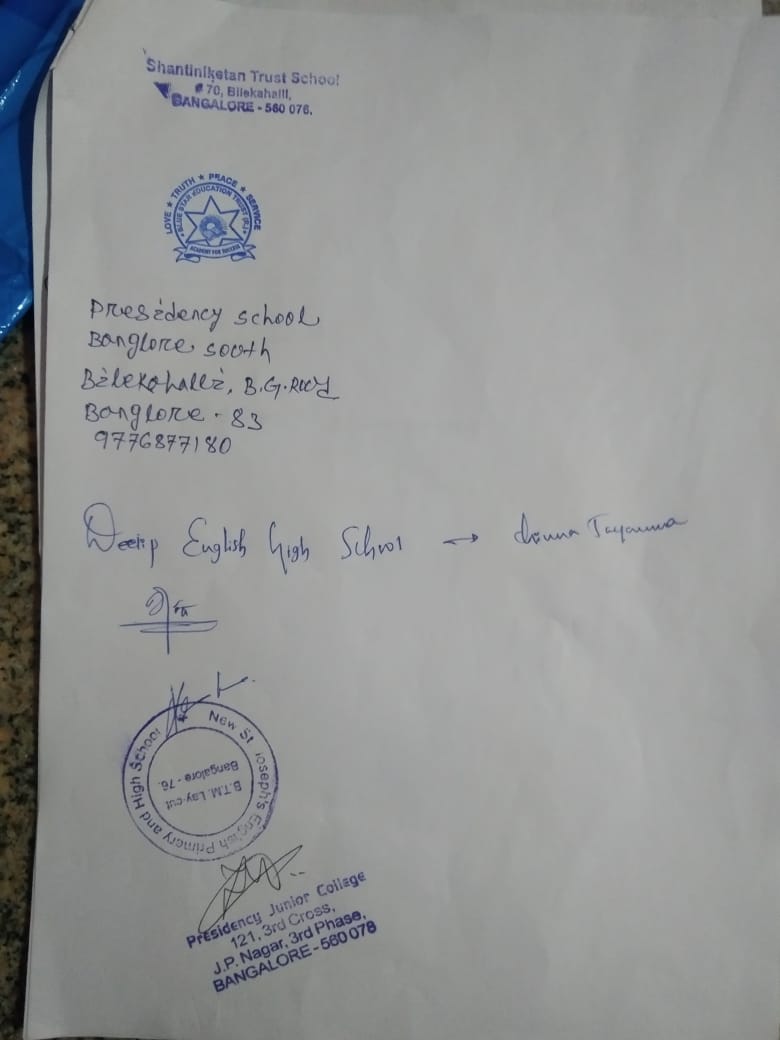 Shantiniketan Trust School
# 70, Bilekahalli,
BANGALORE - 560 076.
LOVE ★ TRUTH ★ PEACE ★ SERVICE
BLUE STAR EDUCATION TRUST (R.)
ACADEMY FOR SUCCESS
Presidency school
Banglore south
Bilekahalli, B.G.Road
Banglore - 83
9776877180
English High School →
New St Joseph's English Primery and High School
B.T.M. Lay-out
Bangalore - 76.
Presidency Junior College
121, 3rd Cross,
J.P. Nagar, 3rd Phase,
BANGALORE - 560 078